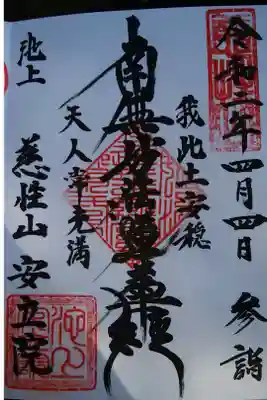 令和二年四月四日 参詣
我此土安穏
南無妙法蓮華経
天人常充満
池上
慈性山 安立院